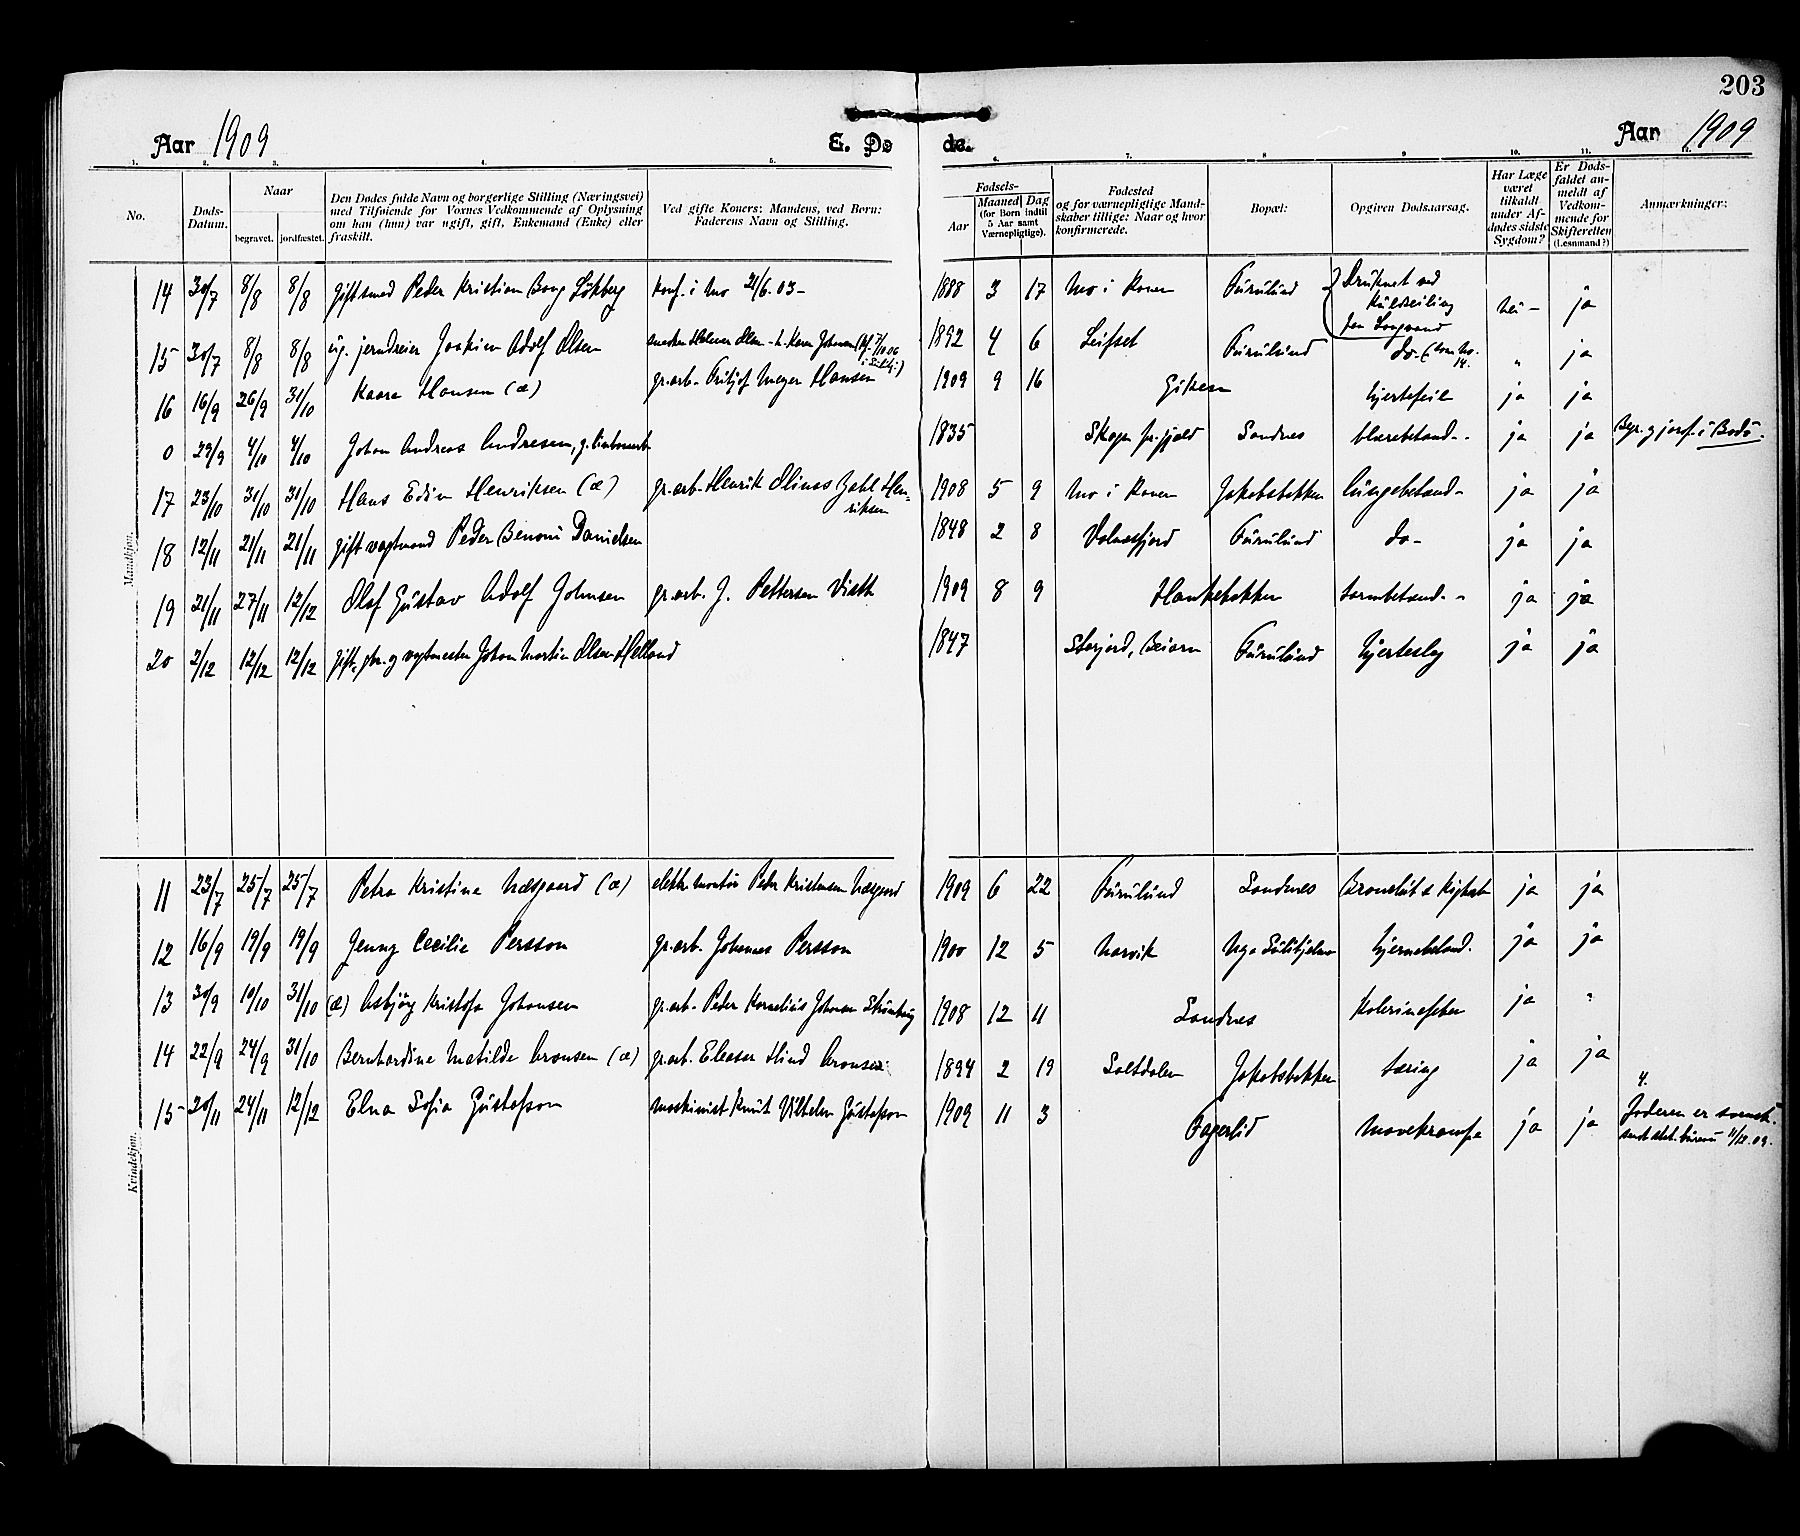 203
Aar 1909 E. Dø de. Aar 1909
1. 2. 3. 4. 5. 6. 7. 8 9 10. 11. 12.
No.
Døds-Datum.
Naar
begravet. jordfæstet.
Den Dødes fulde Navn og borgerlige Stilling (Næringsvei) med Tilføiende for Voxnes Vedkommende af Oplysning om han (hun) var ugift, gift, Enkemand (Enke) eller fraskilt.
Ved gifte Koner: Mandens, ved Børn: Faderens Navn og Stilling.
Fødsels-
Aar
Maaned Dag
(for Børn indtil 5 Aar samt Værnepligtige).
Fødested og for værnepligtige Mandskaber tillige: Naar og hvor konfirmerede.
Bopæl:
Opgiven Dødsaarsag.
Har Læge været tilkaldt under Afdødes sidste Sygdom?
Er Dødsfaldet anmeldt af Vedkommende for Skifteretten (Lensmand?)
Anmærkninger:
Mandkjøn.
14 30/7 8/8 8/8 gift smed Peder Kristian Bong Løkberg konf. i Mo 21/6 03- 1888 3 17 Mo i Ranen Furulund Druknet ved kulseiling paa Langvand nei - ja
15 30/7 8/8 8/8 ug. jerndreier Joakim Adolf Olsen 1892 4 6 Leifset Furulund do- (som No. 14. " ja
16 16/9 26/9 31/10 Kaare Hansen (æ) gr.arb. Fritjof Meyer Hansen 1909 9 16 Giken hjertefeil ja ja
0 29/9 4/10 4/10 Johan Andreas Andresen, 1835 Sandnes blærebetænd- ja ja Begr. og jordf. i Bodø.
17 23/10 31/10 31/10 Hans Edin Henriksen (æ) gr.arb. Henrik Olinus Zahl Henriksen 1908 5 9 Mo i Ranen Jakobsbakken lungebetænd- ja ja
18 12/11 21/11 21/11 gift vogtmand Peder Benoni Danielsen 1848 2 8 Valnesfjord Furulund do- ja ja
19 21/11 27/11 12/12 Olaf Gustav Adolf Johnsen gr.arb. J. Pettersen 1909 8 9 Hankebakken tarmbetænd- ja ja
20 2/12 12/12 12/12 gift, Johan Martin Olsen Helland 1847 Storjord, Beiarn Furulund hjerteslag ja ja
Kvindekjøn.
11 23/7 25/7 25/7 Petra Kristine Næsgaard (æ) elektr. montør Peder Kristensen Næsgaard 1909 6 22 Furulund Sandnes Bronchit & Kighoste ja ja
12 16/9 19/9 19/9 Jenny Cecilie Persson gr.arb. Johannes Persson 1900 12 5 Narvik Nya Sulitjelma hjernebetænd. ja ja
13 30/9 10/10 31/10 (æ) Asbjørg Kristofa Johansen gr.arb. Peder Kornelius Johansen 1908 12 11 Sandnes Kolerinefeber ja "
14 22/9 24/9 31/10 Bernhardine Matilde Aronsen (æ) gr.arb. Eleasar Hind Aronsen 1894 2 19 Saltdalen Jakobsbakken tæring ja ja
15 20/11 24/11 12/12 Elna Sofia Gustafsson maskinist Knut Vilhelm Gustafsson 1909 11 3 Fagerlid Mavekrampe ja ja
4. Faderen er svensk. Sendt stat. bureau 11/12.09.